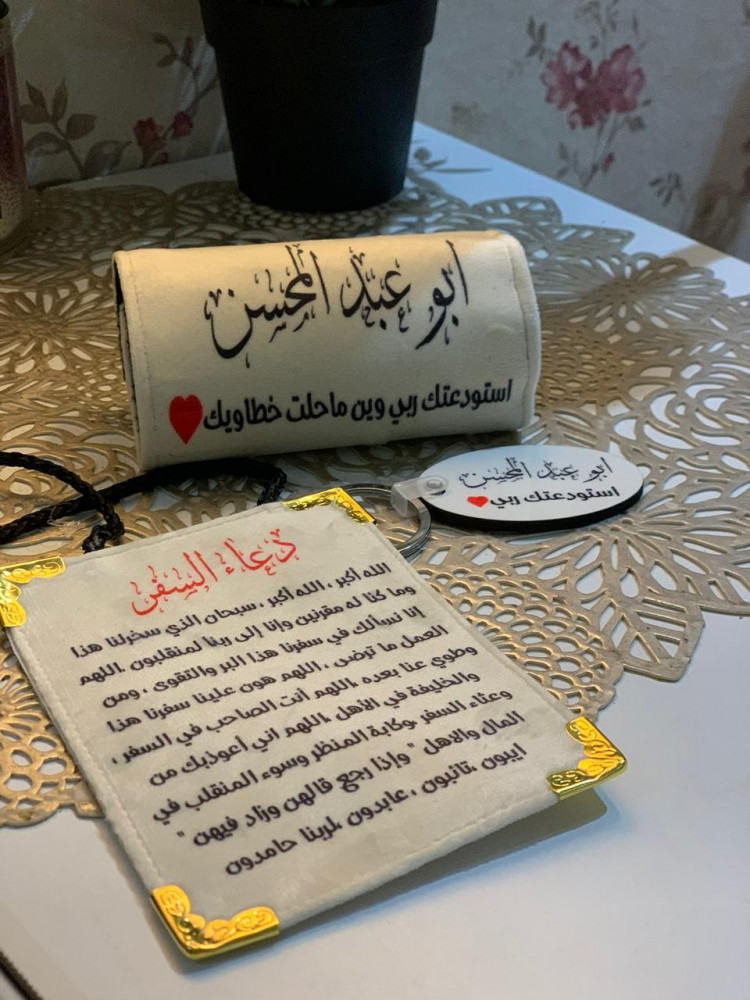 ابو عبد المحسن
استودعتك ربي وين ماحلت خطاويك
ابو عبد المحسن
استودعتك ربي
دعاء السفر
الله أكبر ، الله أكبر ، سبحان الذي سخرلنا هذا
وما كنا له مقرنين وإنا إلى ربنا لمنقلبون .اللهم
إنا نسألك في سفرنا هذا البر والتقوى ، ومن
العمل ما ترضى ، اللهم هون علينا سفرنا هذا
وطوي عنا بعده .اللهم أنت الصاحب في السفر ،
والخليفة في الأهل .اللهم اني اعوذبك من
وعثاء السفر .وكابة المنظر وسوء المنقلب في
المال والاهل " وإذا رجع قالهن وزاد فيهن "
ايبون ،تائبون ، عابدون ،لربنا حامدون